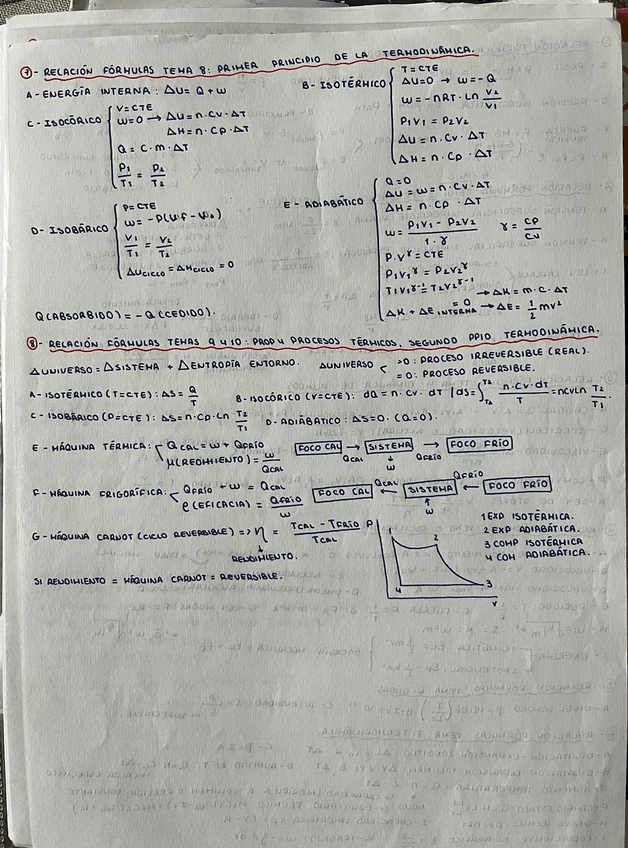 7- RELACIÓN FÓRMULAS TEMA 8: PRIMER PRINCIPIO DE LA TERMODINÁMICA.
A- ENERGÍA INTERNA: ΔU = Q + W
B- ISOTÉRMICO
T = CTE
ΔU=0 → W=-Q
W = -nRT · Ln V2/V1
P1V1 = P2V2
ΔU = n · Cv · ΔT
ΔH = n · Cp · ΔT
C- ISOCÓRICO
V= CTE
W=0 → ΔU = n · Cv · ΔT
ΔH = n · Cp · ΔT
Q = C · m · ΔT
P1/T1 = P2/T2
D- ISOBÁRICO
P= CTE
W= -P(Vf - V0)
V1/T1 = V2/T2
ΔU CICLO = ΔH CICLO = 0
E- ADIABÁTICO
Q=0
ΔU = W = n · Cv · ΔT
ΔH = n · Cp · ΔT
W = P1V1 - P2V2 / 1 - γ γ = CP/CV
P · V^γ = CTE
P1V1^γ = P2V2^γ
T1V1^γ-1 = T2V2^γ-1
ΔK + ΔE INTERNA = 0 → ΔH = m · C · ΔT
→ ΔE = 1/2 mv²
Q (ABSORBIDO) = - Q (CEDIDO).
8- RELACIÓN FÓRMULAS TEMAS 9 Y 10: PROP Y PROCESOS TÉRMICOS, SEGUNDO PPIO TERMODINÁMICA.
ΔUNIVERSO = ΔSISTEMA + ΔENTROPÍA ENTORNO. ΔUNIVERSO
>0: PROCESO IRREVERSIBLE (REAL).
=0: PROCESO REVERSIBLE.
A- ISOTÉRMICO (T=CTE): ΔS = Q/T B- ISOCÓRICO (V=CTE): dQ = n · Cv · dT ∫dS = ∫ n · Cv · dT / T = nCv Ln T2/T1.
C- ISOBÁRICO (P=CTE): ΔS = n · Cp · Ln T2/T1 D- ADIÁBATICO: ΔS=0. (Q=0).
E- MÁQUINA TÉRMICA:
QCAL = W + QFRÍO
μ (REDMIENTO) = W/QCAL
FOCO CAL → QCAL SISTEMA → QFRÍO FOCO FRÍO
↓ W
F- MÁQUINA FRIGORÍFICA:
QFRÍO + W = QCAL
e (EFICACIA) = QFRÍO/W
FOCO CAL ← QCAL SISTEMA ← QFRÍO FOCO FRÍO
↑ W
G- MÁQUINA CARNOT (CICLO REVERSIBLE) => η = TCAL - TFRÍO / TCAL
↓
RENDIMIENTO.
P
1
2
3
4
V
1 EXP ISOTÉRMICA.
2 EXP ADIABÁTICA.
3 COMP ISOTÉRMICA
4 COM ADIABÁTICA.
SI RENDIMIENTO = MÁQUINA CARNOT = REVERSIBLE.